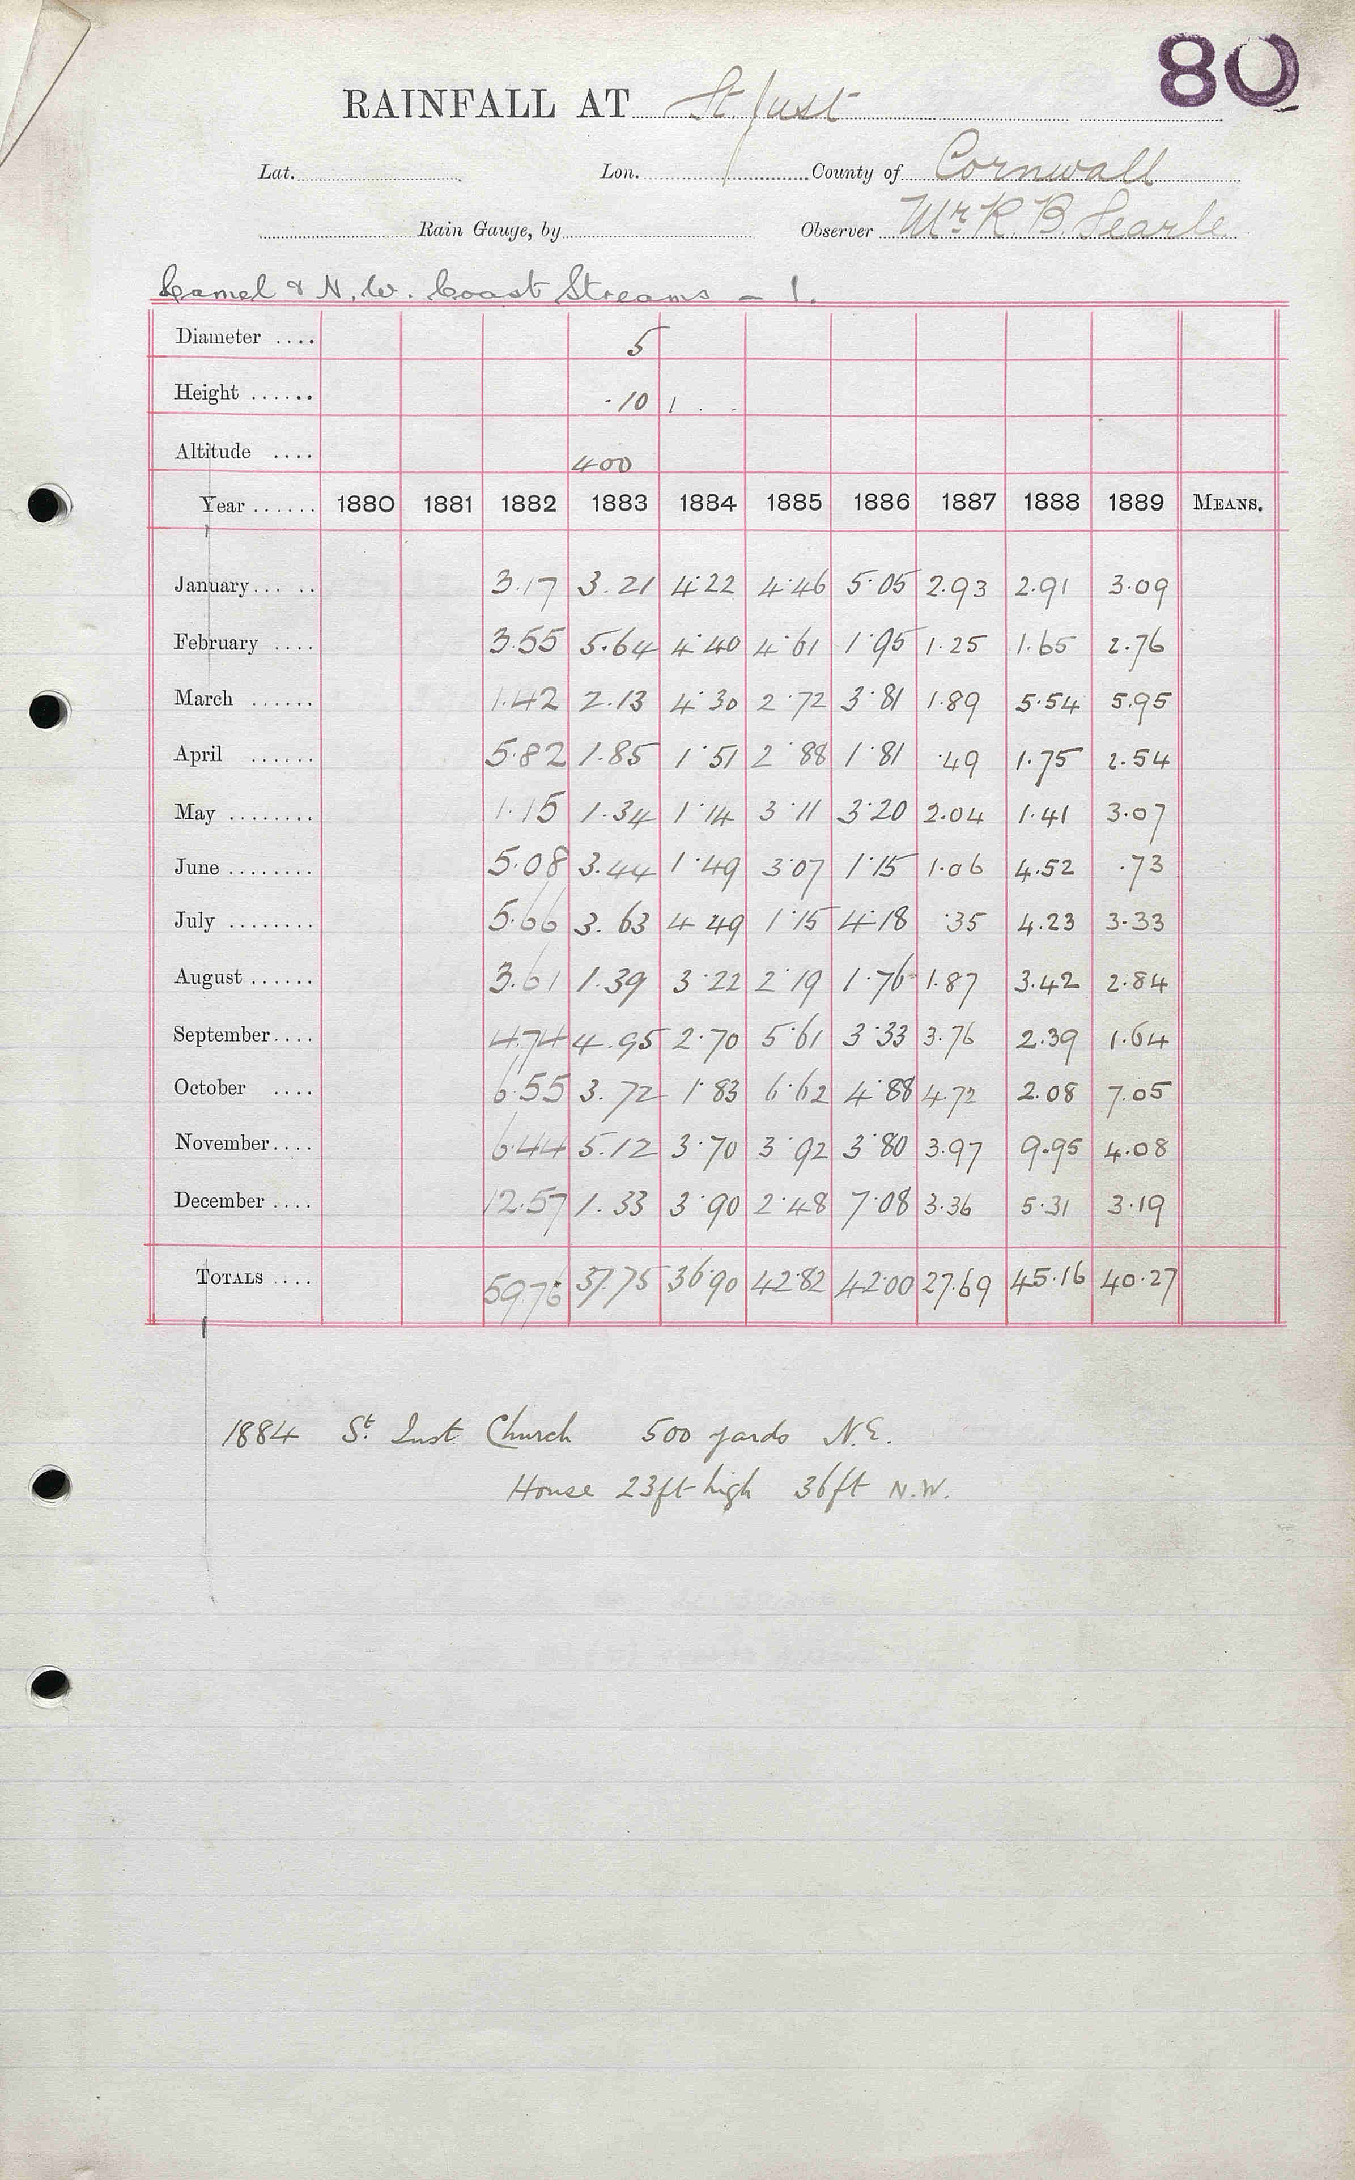 80
RAINFALL AT St Just
Lat. Lon. County of Cornwall
Rain Gauge, by Observer Mr. R. B. Searle
Camel & N.W. Coast Streams – 1.
Diameter .... 5
Height ...... ·10 1
Altitude .... 400
Year ...... 1880 1881 1882 1883 1884 1885 1886 1887 1888 1889 MEANS.
January... .. 3.17 3.21 4.22 4.46 5.05 2.93 2.91 3.09
February .... 3.55 5.64 4.40 4.61 1.95 1.25 1.65 2.76
March ...... 1.42 2.13 4.30 2.72 3.81 1.89 5.54 5.95
April ...... 5.82 1.85 1.51 2.88 1.81 .49 1.75 2.54
May ........ 1.15 1.34 1.14 3.11 3.20 2.04 1.41 3.07
June ........ 5.08 3.44 1.49 3.07 1.15 1.06 4.52 .73
July ........ 5.66 3.63 4.49 1.15 4.18 .35 4.23 3.33
August ...... 3.61 1.39 3.22 2.19 1.76 1.87 3.42 2.84
September.... 4.74 4.95 2.70 5.61 3.33 3.76 2.39 1.64
October .... 6.55 3.72 1.83 6.62 4.88 4.72 2.08 7.05
November.... 6.44 5.12 3.70 3.92 3.80 3.97 9.95 4.08
December .... 12.57 1.33 3.90 2.48 7.08 3.36 5.31 3.19
TOTALS .... 59.76 37.75 36.90 42.82 42.00 27.69 45.16 40.27
1884 St. Just Church 500 yards N.E.
House 23ft high 36ft N.W.